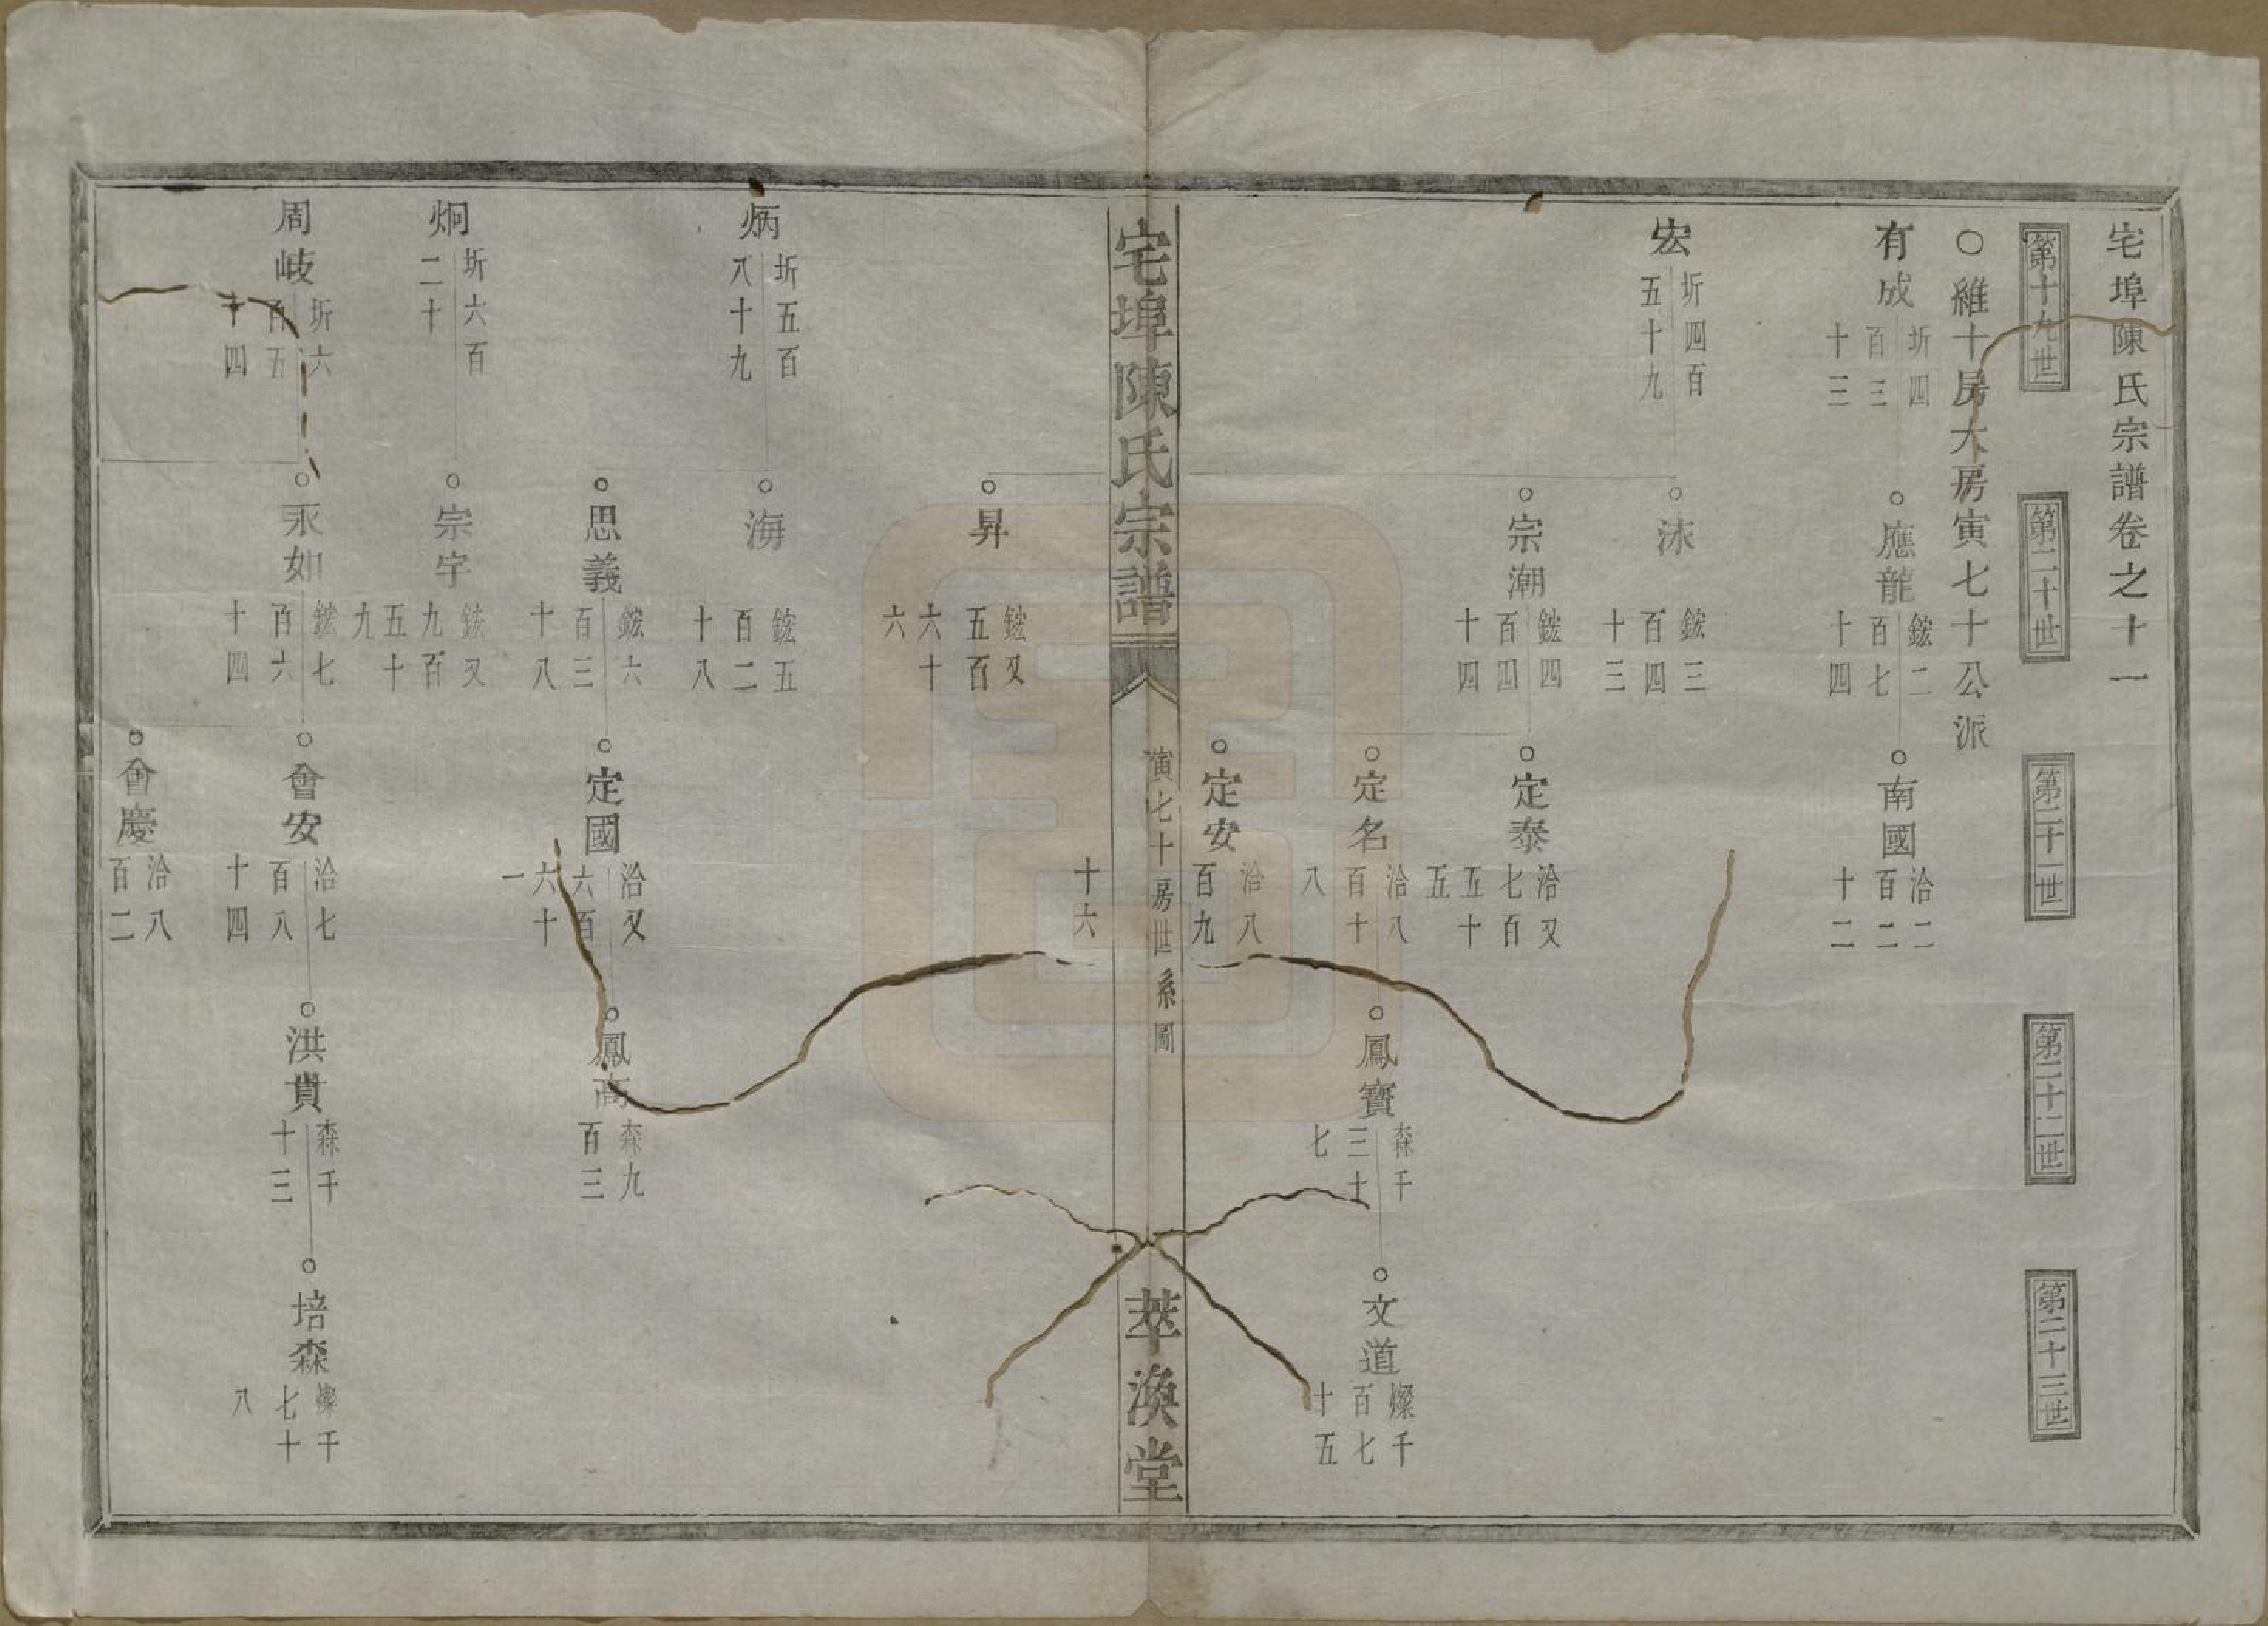 宅埠陳氏宗譜卷之十一
第十九世
第二十世
第二十一世
第二十二世
第二十三世
○維十房大房寅七十公派
有成
圻四
百三
十三
應龍
鋐二
百七
十四
南國
洽二
百二
十二
宏
圻四百
五十九
洡
鋐三
百四
十三
宗潮
鋐四
百四
十四
定泰
洽又
七百
五十
五
定名
洽八
百十
八
鳳寶
森千
三十
七
文道
燦千
百七
十五
定安
洽八
百九
十六
宅埠陳氏宗譜
寅七十房世系圖
萃渙堂
昇
鋐又
五百
六十
六
炳
圻五百
八十九
海
鋐五
百二
十八
思義
鋐六
百三
十八
定國
洽又
六百
六十
一
鳳高
森九
百三
炯
圻六百
二十
宗宇
鋐又
九百
五十
九
周岐
圻六
百五
十四
永如
鋐七
百六
十四
會安
洽七
百八
十四
洪貴
森千
十三
培森
燦千
七十
八
會慶
洽八
百二